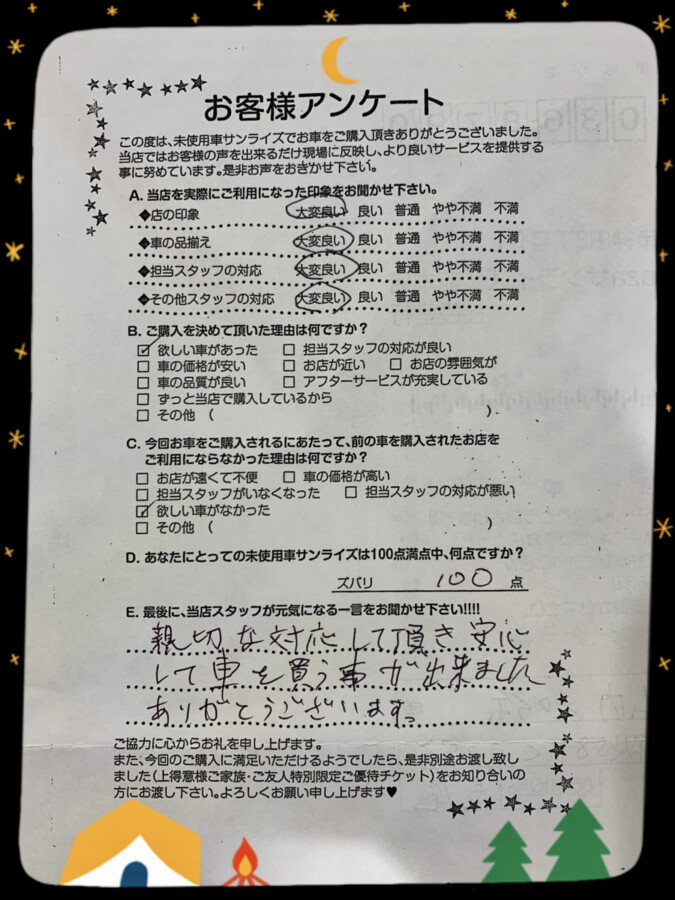 お客様アンケート
この度は、未使用車サンライズでお車をご購入頂きありがとうございました。
当店ではお客様の声を出来るだけ現場に反映し、より良いサービスを提供する
事に努めています。是非お声をおきかせ下さい。
A. 当店を実際にご利用になった印象をお聞かせ下さい。
◆店の印象 大変良い 良い 普通 やや不満 不満
◆車の品揃え 大変良い 良い 普通 やや不満 不満
◆担当スタッフの対応 大変良い 良い 普通 やや不満 不満
◆その他スタッフの対応 大変良い 良い 普通 やや不満 不満
B. ご購入を決めて頂いた理由は何ですか?
☑ 欲しい車があった □ 担当スタッフの対応が良い
□ 車の価格が安い □ お店が近い □ お店の雰囲気が
□ 車の品質が良い □ アフターサービスが充実している
□ ずっと当店で購入しているから
□ その他 ( ).
C. 今回お車をご購入されるにあたって、前の車を購入されたお店を
ご利用にならなかった理由は何ですか?
□ お店が遠くて不便 □ 車の価格が高い
□ 担当スタッフがいなくなった □ 担当スタッフの対応が悪い
☑ 欲しい車がなかった
□ その他 ( )
D. あなたにとっての未使用車サンライズは100点満点中、何点ですか?
ズバリ 100 点
E. 最後に、当店スタッフが元気になる一言をお聞かせ下さい!!!!
親切な対応して頂き安心
して車を買う事が出来ました
ありがとうございます。
ご協力に心からお礼を申し上げます。
また、今回のご購入に満足いただけるようでしたら、是非別途お渡し致し
ました(上得意様ご家族・ご友人特別限定ご優待チケット)をお知り合いの
方にお渡し下さい。よろしくお願い申し上げます♥